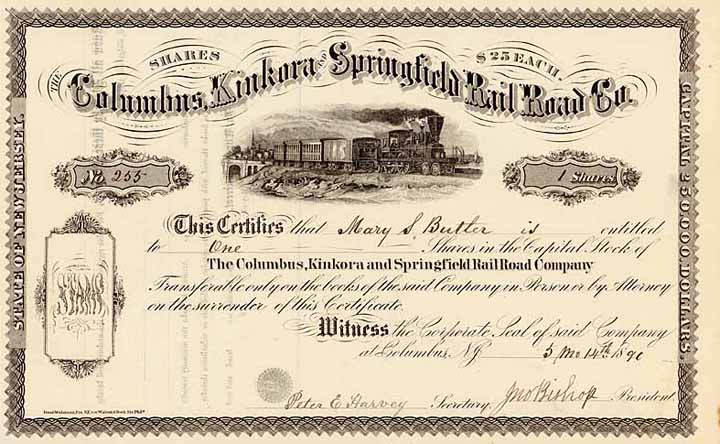 SHARES $25 EACH.
THE Columbus, Kinkora AND Springfield Rail Road Co.
STATE OF NEW JERSEY.
CAPITAL 250,000 DOLLARS.
No. 255
1 Shares
This Certifies that Mary S. Butler is entitled
to One Shares in the Capital Stock of
The Columbus, Kinkora and Springfield Rail Road Company
Transferable only on the books of the said Company, in Person or by Attorney
on the surrender of this Certificate.
SHARES
Witness the Corporate Seal of said Company
at Columbus, NJ 5 Mo 14th 1890
Peter E. Harvey Secretary. Jno Bishop President.